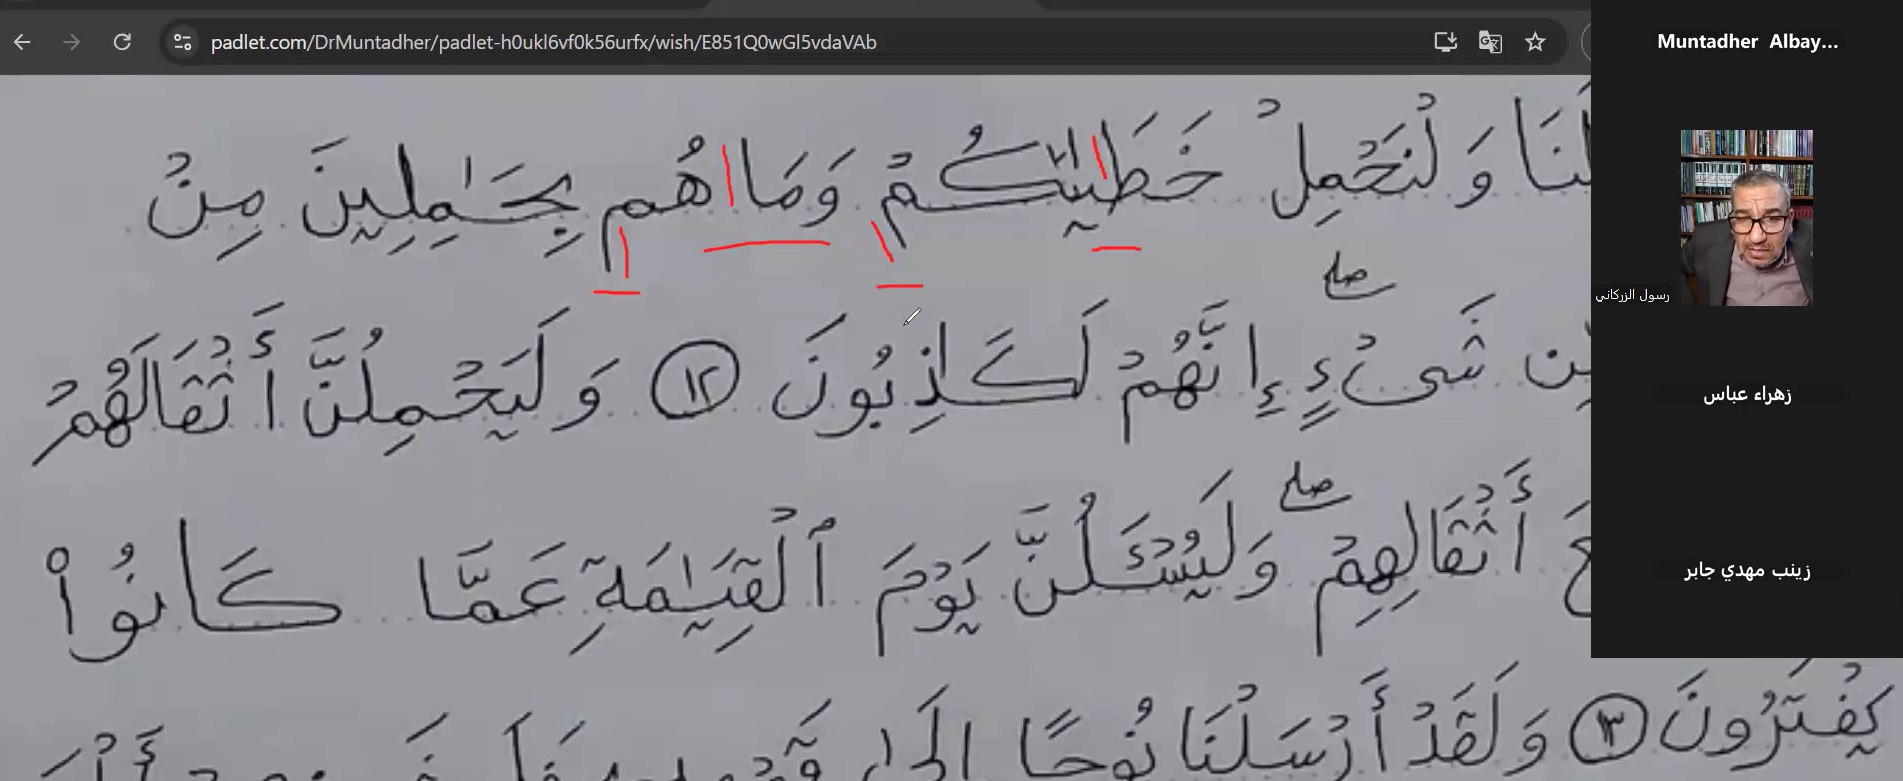 padlet.com/DrMuntadher/padlet-h0ukl6vf0k56urfx/wish/E851Q0wGl5vdaVAb
Muntadher Albay...
رسول الزركاني
زهراء عباس
زينب مهدي جابر
وَلْنَحْمِلْ خَطَٰيَٰكُمْ وَمَا هُم بِحَٰمِلِينَ مِنْ
شَىْءٍ إِنَّهُمْ لَكَاذِبُونَ ١٢ وَلَيَحْمِلُنَّ أَثْقَالَهُمْ
أَثْقَالِهِمْ صلے وَلَيُسْـَٔلُنَّ يَوْمَ ٱلْقِيَٰمَةِ عَمَّا كَانُوا۟
يَفْتَرُونَ ١٣ وَلَقَدْ أَرْسَلْنَا نُوحًا إِلَىٰ